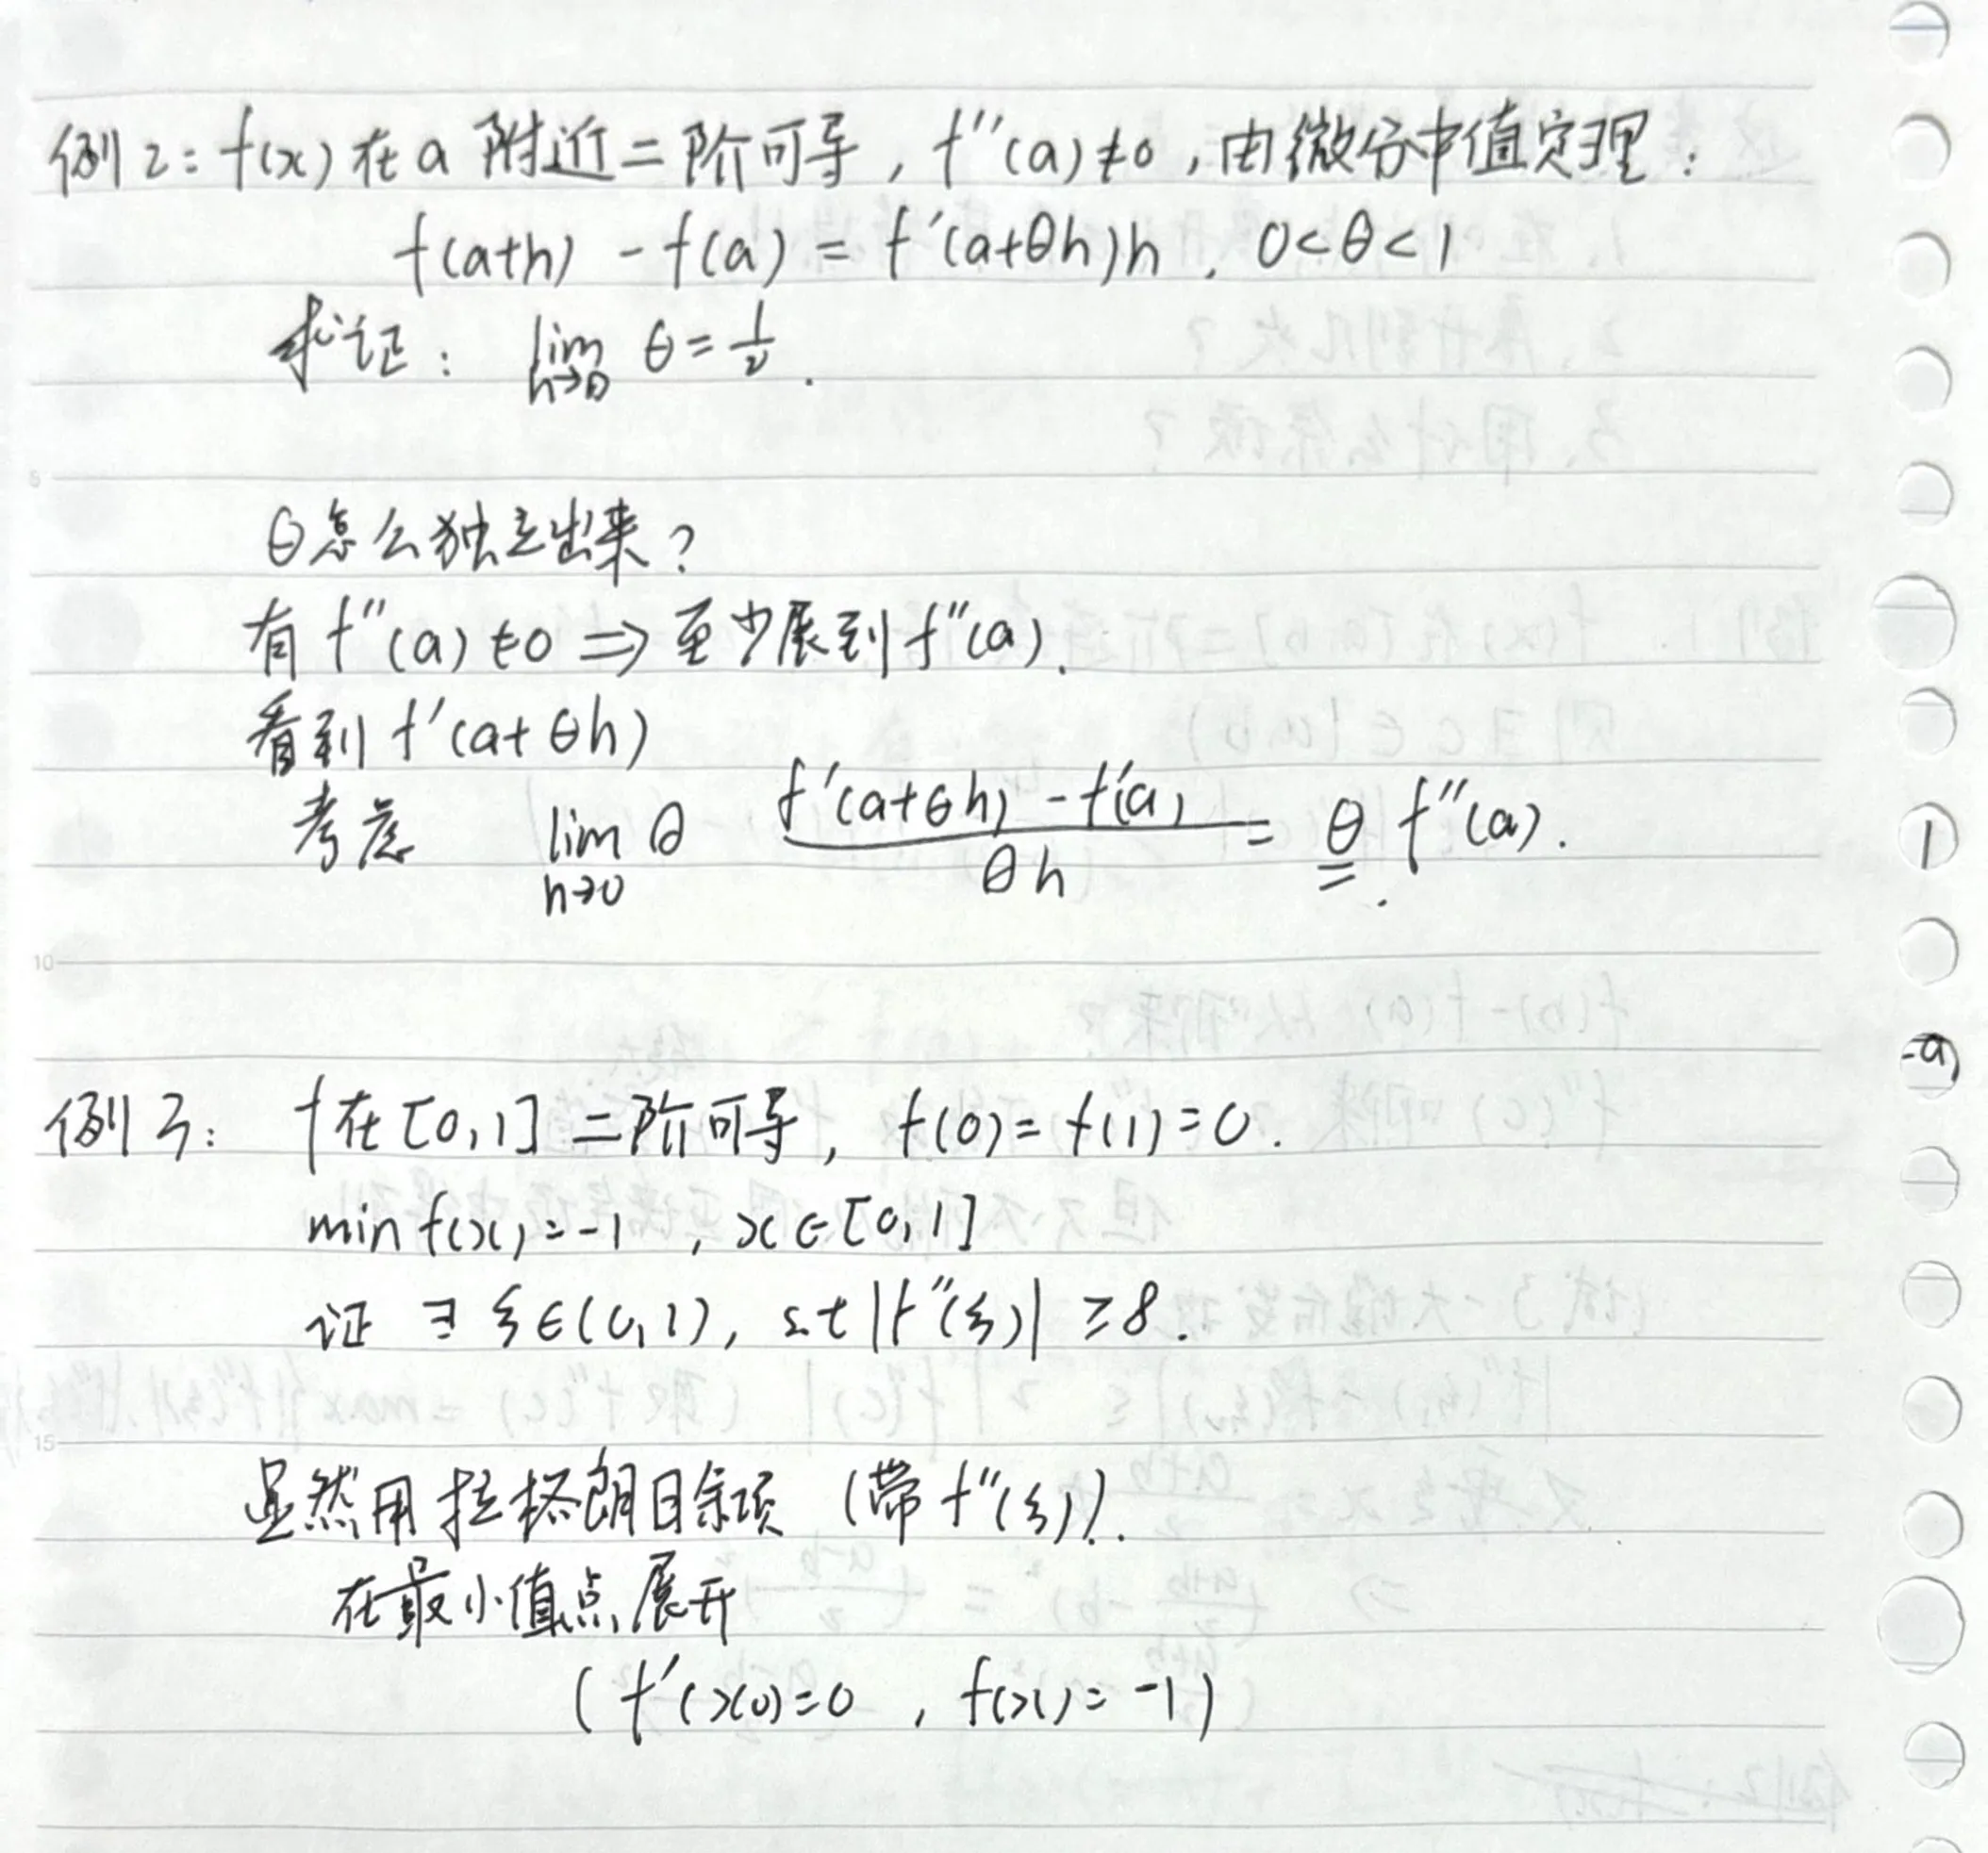 例2: f(x) 在 a 附近二阶可导, f''(a)≠0, 由微分中值定理:
f(a+h) - f(a) = f'(a+θh)h, 0<θ<1
求证: lim h→0 θ = 1/2.
5
θ怎么独立出来?
有 f''(a)≠0 ⇒ 至少展到 f''(a).
看到 f'(a+θh)
考虑 lim h→0 θ (f'(a+θh) - f'(a))/(θh) = θ f''(a).
10
例3: f在[0,1]二阶可导, f(0)=f(1)=0.
min f(x)=-1, x∈[0,1]
证 ∃ ξ∈(0,1), s.t |f''(ξ)| ≥8.
15
显然用拉格朗日余项 (带 f''(ξ)).
在最小值点展开
(f'(x0)=0, f(x)=-1)